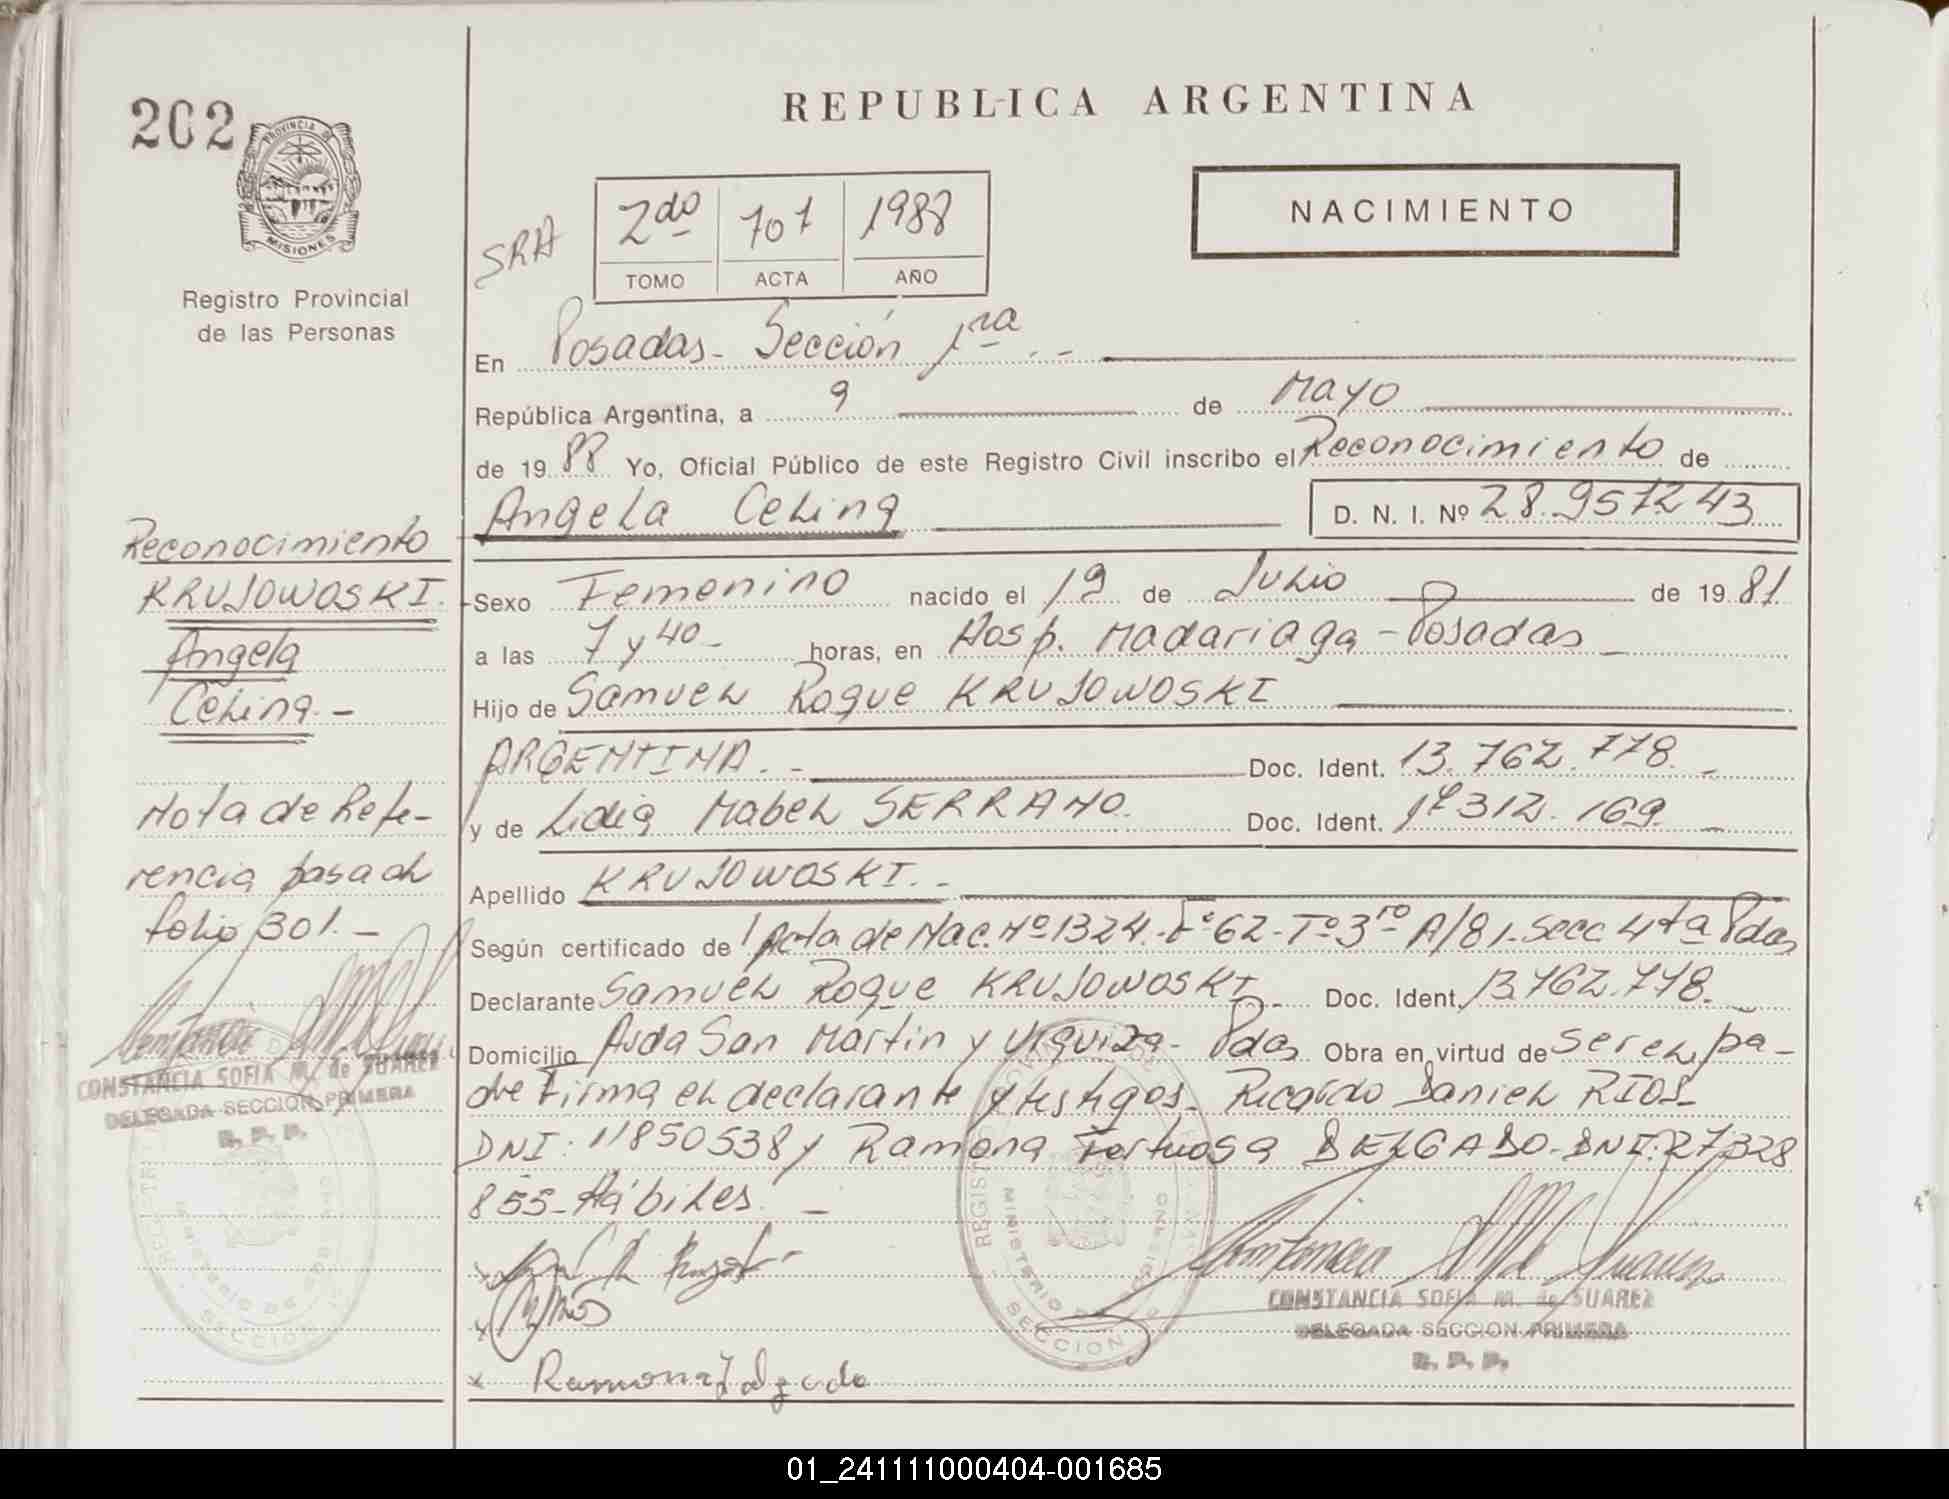 202
PROVINCIA DE
MISIONES
Registro Provincial
de las Personas
REPUBLICA ARGENTINA
NACIMIENTO
SRA
2do 707 1988
TOMO ACTA AÑO
En Posadas - Sección 1ra. -
República Argentina, a 9 de Mayo
de 1988 Yo, Oficial Público de este Registro Civil inscribo el Reconocimiento de
Angela Celina D. N. I. Nº 28.957243
Sexo Femenino nacido el 19 de Julio de 1981
a las 7 y 40 - horas, en Hosp. Madariaga - Posadas
Hijo de Samuel Roque KRUJOWOSKI
ARGENTINA. - Doc. Ident. 13.762.778. -
y de Lidia Mabel SERRANO. Doc. Ident. 17312.169. -
Apellido KRUJOWOSKI. -
Según certificado de Acta de Nac. Nº 1324. Fº 62 - Tº 3ro A/81 - Secc 4ta Pdas
Declarante Samuel Roque KRUJOWOSKI - Doc. Ident. 13.762.778. -
Domicilio Avda San Martin y Urquiza - Pdas Obra en virtud de ser el pa-
dre Firma el declarante y testigos - Ricardo Daniel RIOS -
DNI: 11850538 y Ramona Fortuosa DELGADO - DNI: 27328
855 - Hábiles. -
Ramona Delgado
CONSTANCIA SOFIA M. de SUAREZ
DELEGADA SECCION PRIMERA
R. P. P.
Reconocimiento
KRUJOWOSKI.
Angela
Celina. -
Nota de Refe-
rencia pasa al
folio 301. -
CONSTANCIA SOFIA M. de SUAREZ
DELEGADA SECCION PRIMERA
R. P. P.
01_241111000404-001685